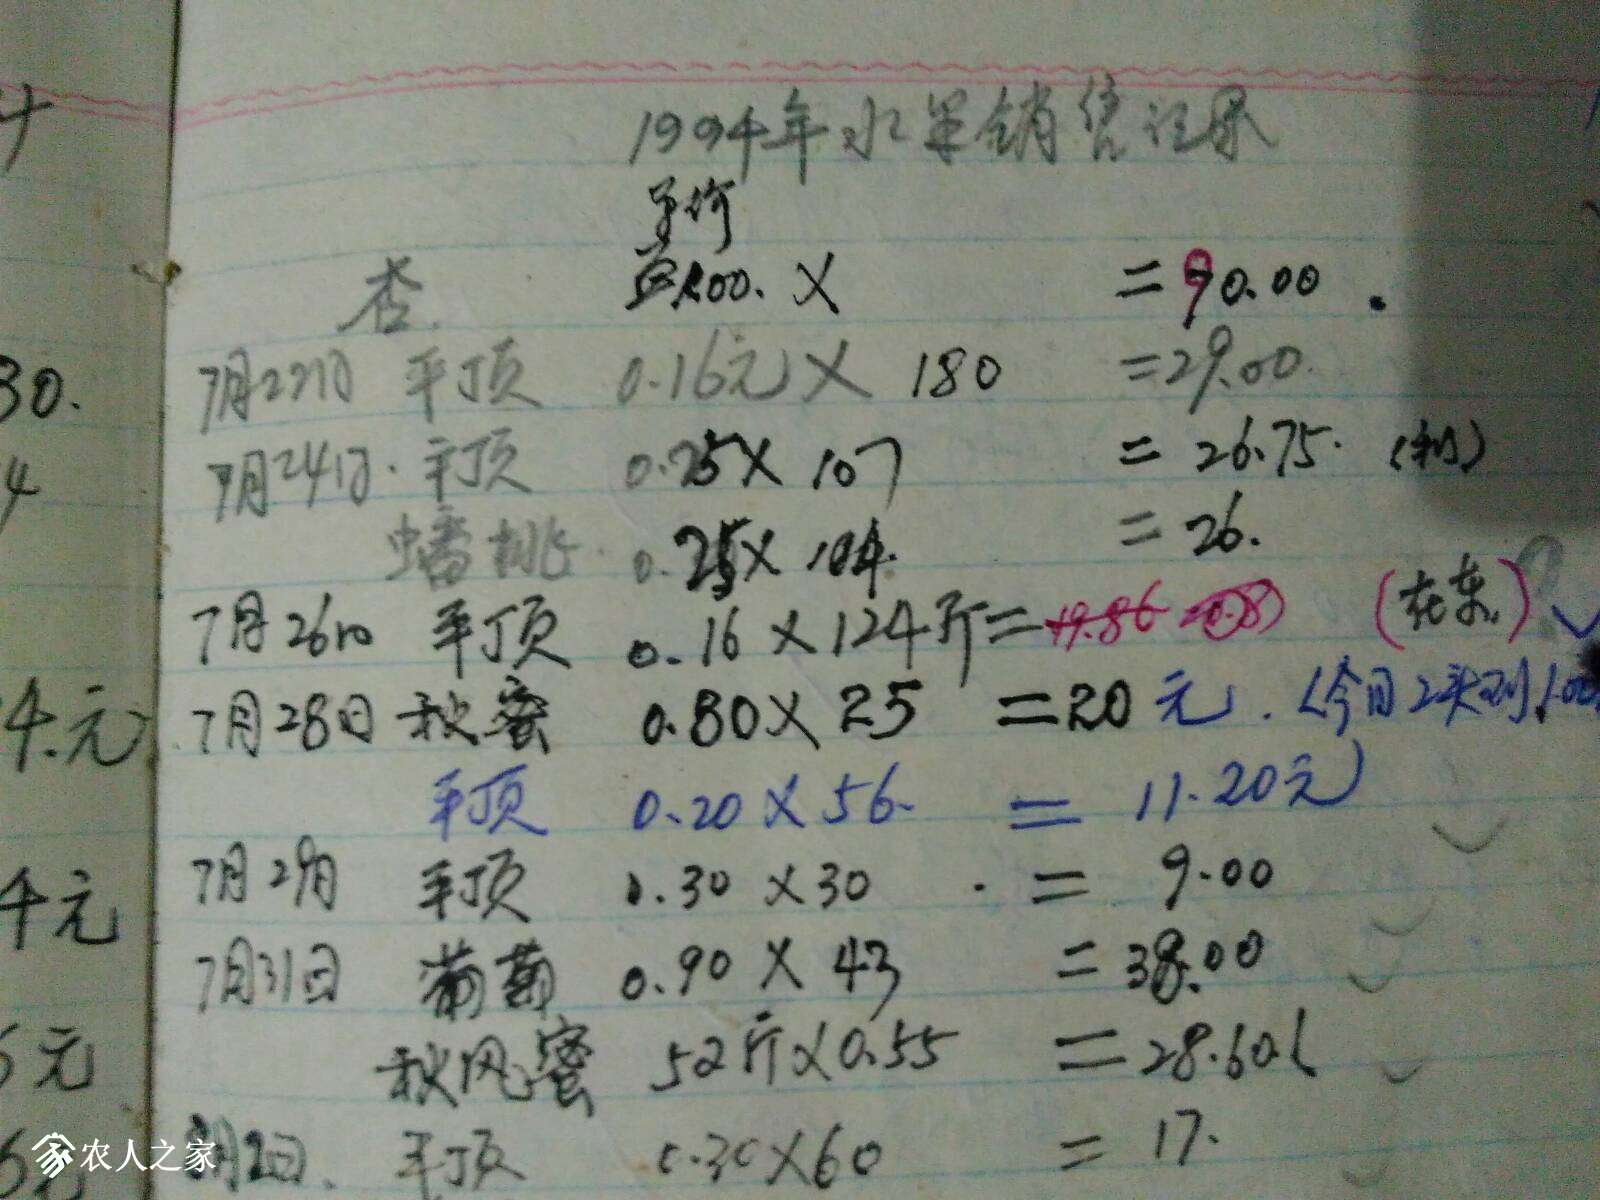 1994年水果销售记录
单价
杏. 200. × = 90.00.
7月22日 平顶 0.16元 × 180 = 29.00.
7月24日. 平顶 0.25 × 107 = 26.75.
蟠桃 0.25 × 104. = 26.
7月26日 平顶 0.16 × 124斤 = 19.86 (在东)
7月28日 秋蜜 0.80 × 25 = 20元. (今日2
平顶 0.20 × 56. = 11.20元)
7月29日 平顶 0.30 × 30 = 9.00
7月31日 葡萄 0.90 × 43 = 38.00
秋风蜜 52斤 × 0.55 = 28.60
8月2日. 平顶 0.30 × 60 = 17.
30.
4
4.元
4元
5元
6元
农人之家